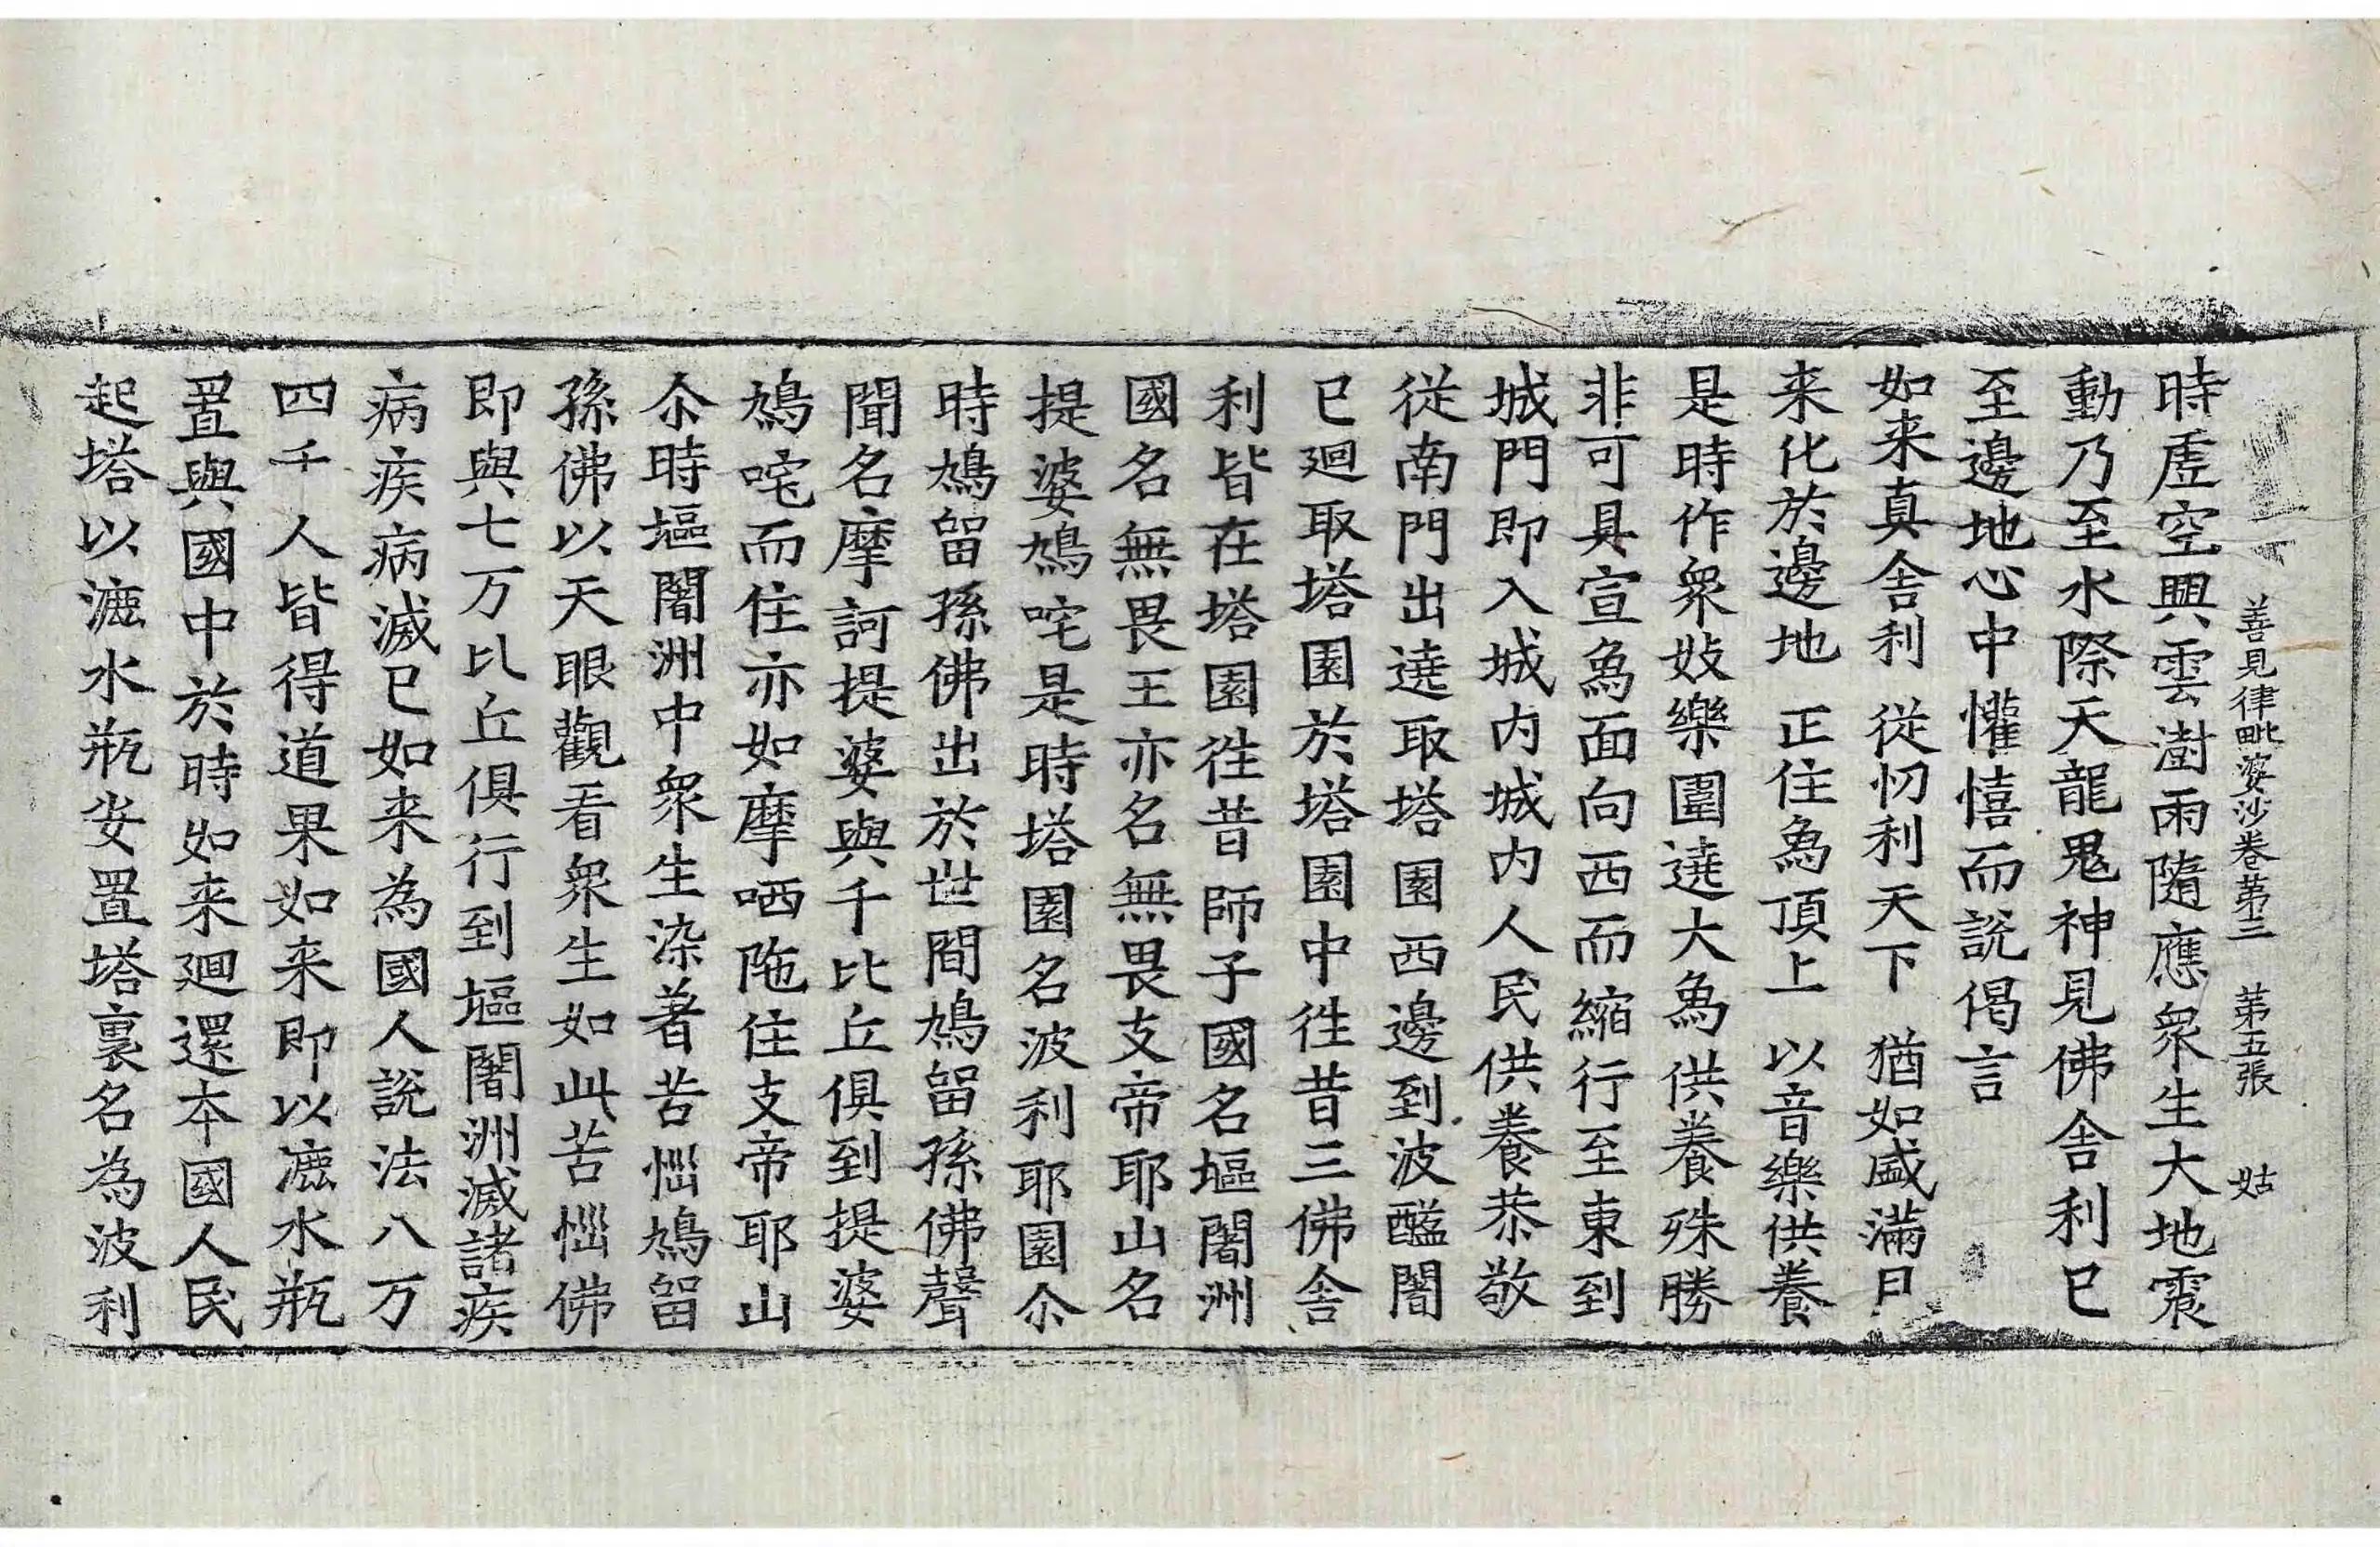 善見律毗婆沙卷苐三 苐五張 姑
時虛空興雲澍雨隨應衆生大地震
動乃至水際天龍鬼神見佛舎利已
至邊地心中懽憘而說偈言
如来真舎利 從忉利天下 猶如盛滿月
来化於邊地 正住為頂上 以音樂供養
是時作衆妓樂圍遶大為供養殊勝
非可具宣為面向西而縮行至東到
城門即入城內城內人民供養恭敬
從南門出遶取塔園西邊到波醯闍
已廻取塔園於塔園中徃昔三佛舎
利皆在塔園徃昔師子國名塸闍洲
國名無畏王亦名無畏支帝耶山名
提婆鳩咤是時塔園名波利耶園尒
時鳩留孫佛出於世間鳩留孫佛聲
聞名摩訶提婆與千比丘俱到提婆
鳩咤而住亦如摩哂陁住支帝耶山
尒時塸闍洲中衆生染著苦惱鳩留
孫佛以天眼觀看衆生如此苦惱佛
即與七万比丘俱行到塸闍洲滅諸疾
病疾病滅已如来為國人說法八万
四千人皆得道果如来即以漉水瓶
置與國中於時如来廻還本國人民
起塔以漉水瓶安置塔裏名為波利